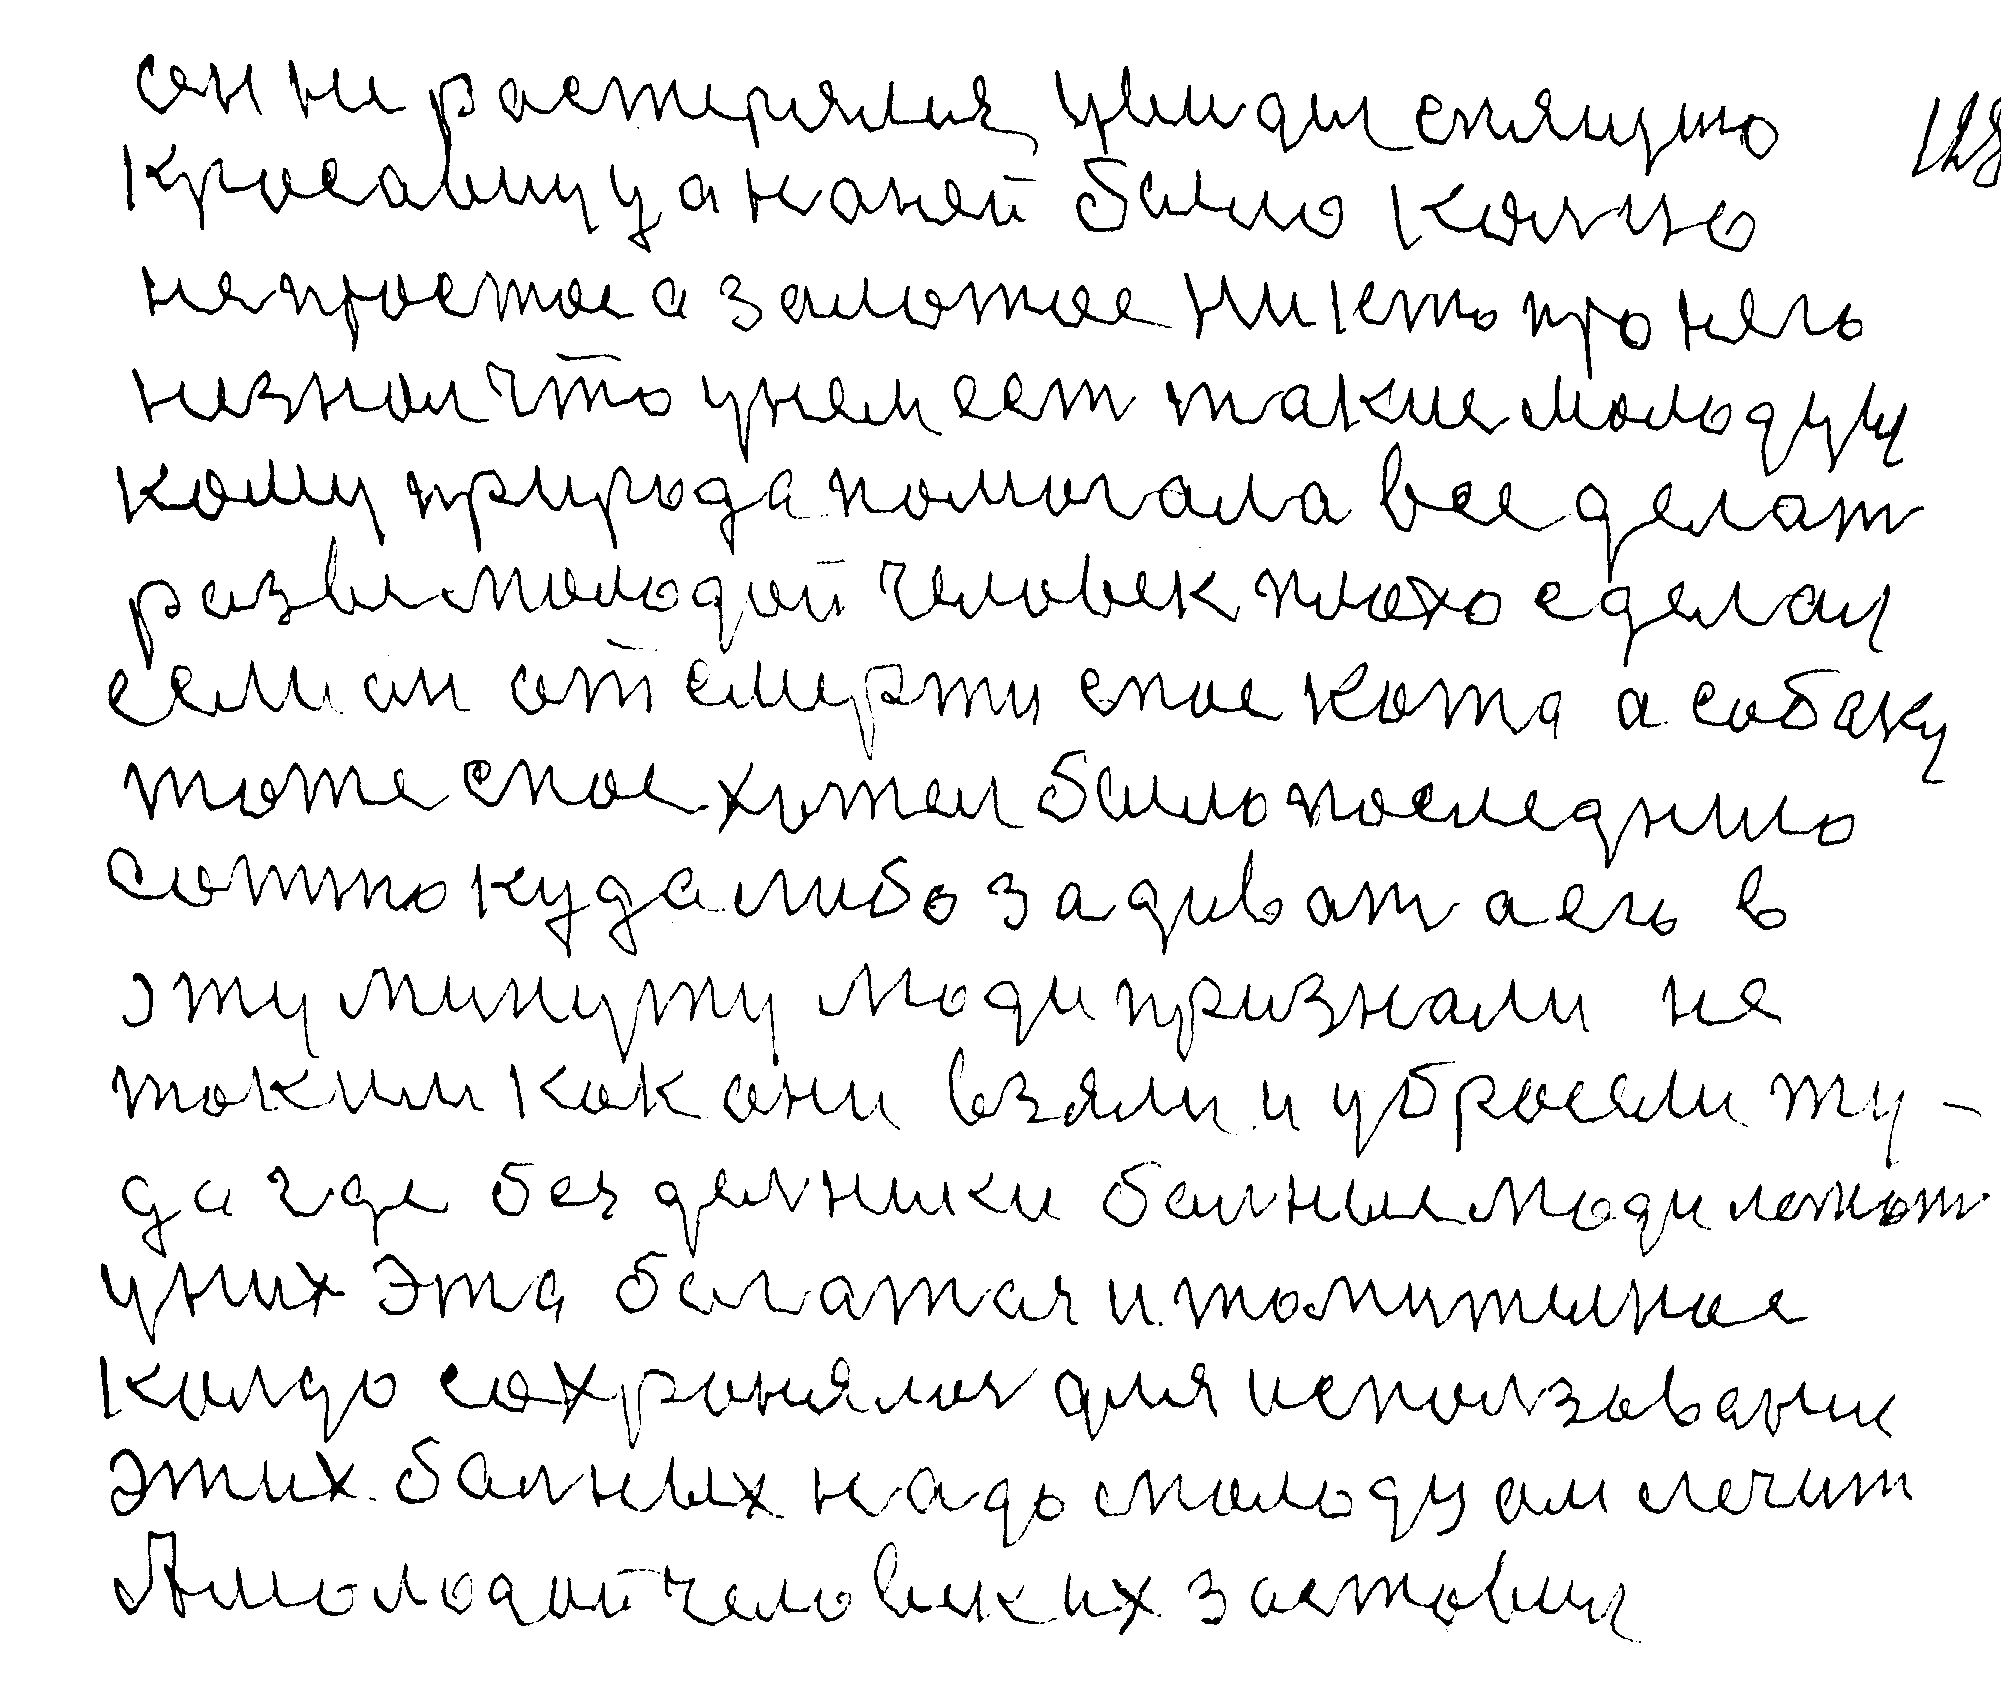 он не растерялся увидил спящую 128
красавицу а на ней было кольцо
не простое а залотое никто про него
не знал что у нем еет такие молодцу
кому природа помогала все делат
разве молодой человек плохо сделал
если он от смерти спас кота а собаку
тоже спас хотел было последнию
сотню куда либо задиват а его в
эту минуту люди признали не
таким как они взяли и убросели ту-
да где бездельники балние люди лежат
у них эта багатая и томителное
колдо сохранялся для исползование
этих. балных надо молодцам лечит
А молодой человек их заставил